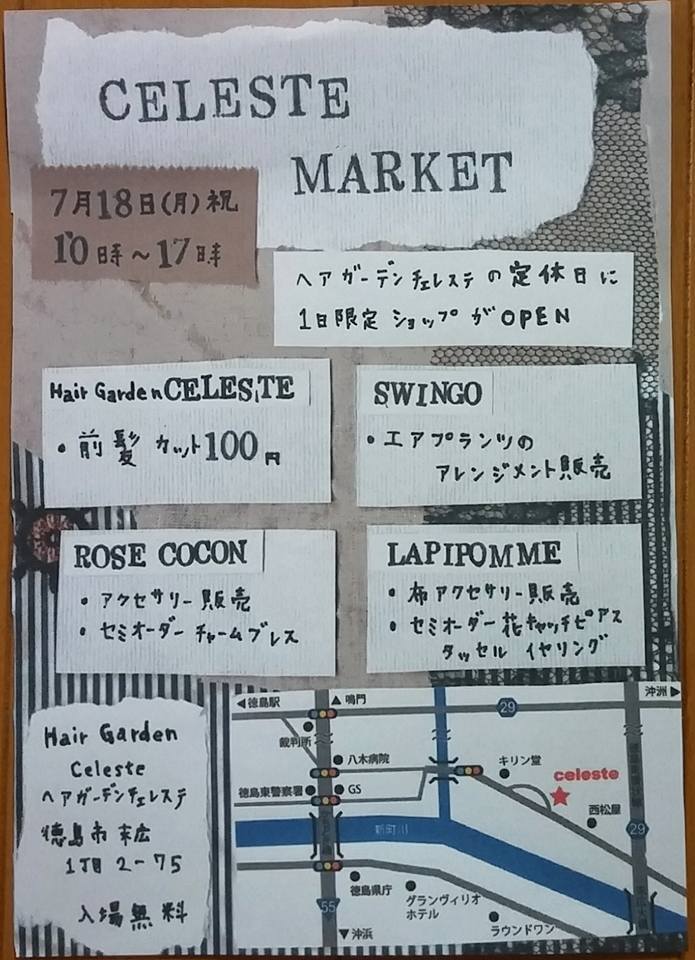 CELESTE
MARKET
7月18日(月)祝
10時～17時
ヘアガーデンチェレステの定休日に
1日限定ショップがOPEN
Hair Garden CELESTE
・前髪カット100円
SWINGO
・エアプランツの
アレンジメント販売
ROSE COCON
・アクセサリー販売
・セミオーダーチャームブレス
LAPIPOMME
・布アクセサリー販売
・セミオーダー花キャッチピアス
タッセルイヤリング
Hair Garden
Celeste
ヘアガーデンチェレステ
徳島市末広
1丁目2-75
入場無料
◀徳島駅
▲鳴門
29
沖洲▶
裁判所
八木病院
キリン堂
celeste
徳島東警察署
GS
西松屋
新町川
29
徳島県庁
グランヴィリオ
ホテル
55
▼沖浜
ラウンドワン